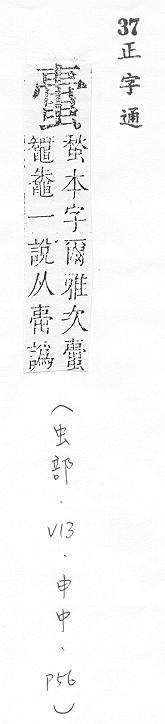 37正字通
蝥本字爾雅次
鼅鼄一說从橐譌
(虫部.V13.申中.P56)